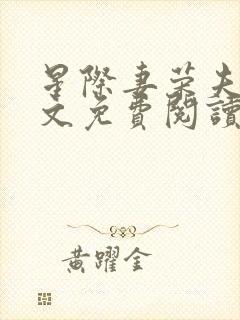 星際妻榮夫
文免費閱讀
黃躍金